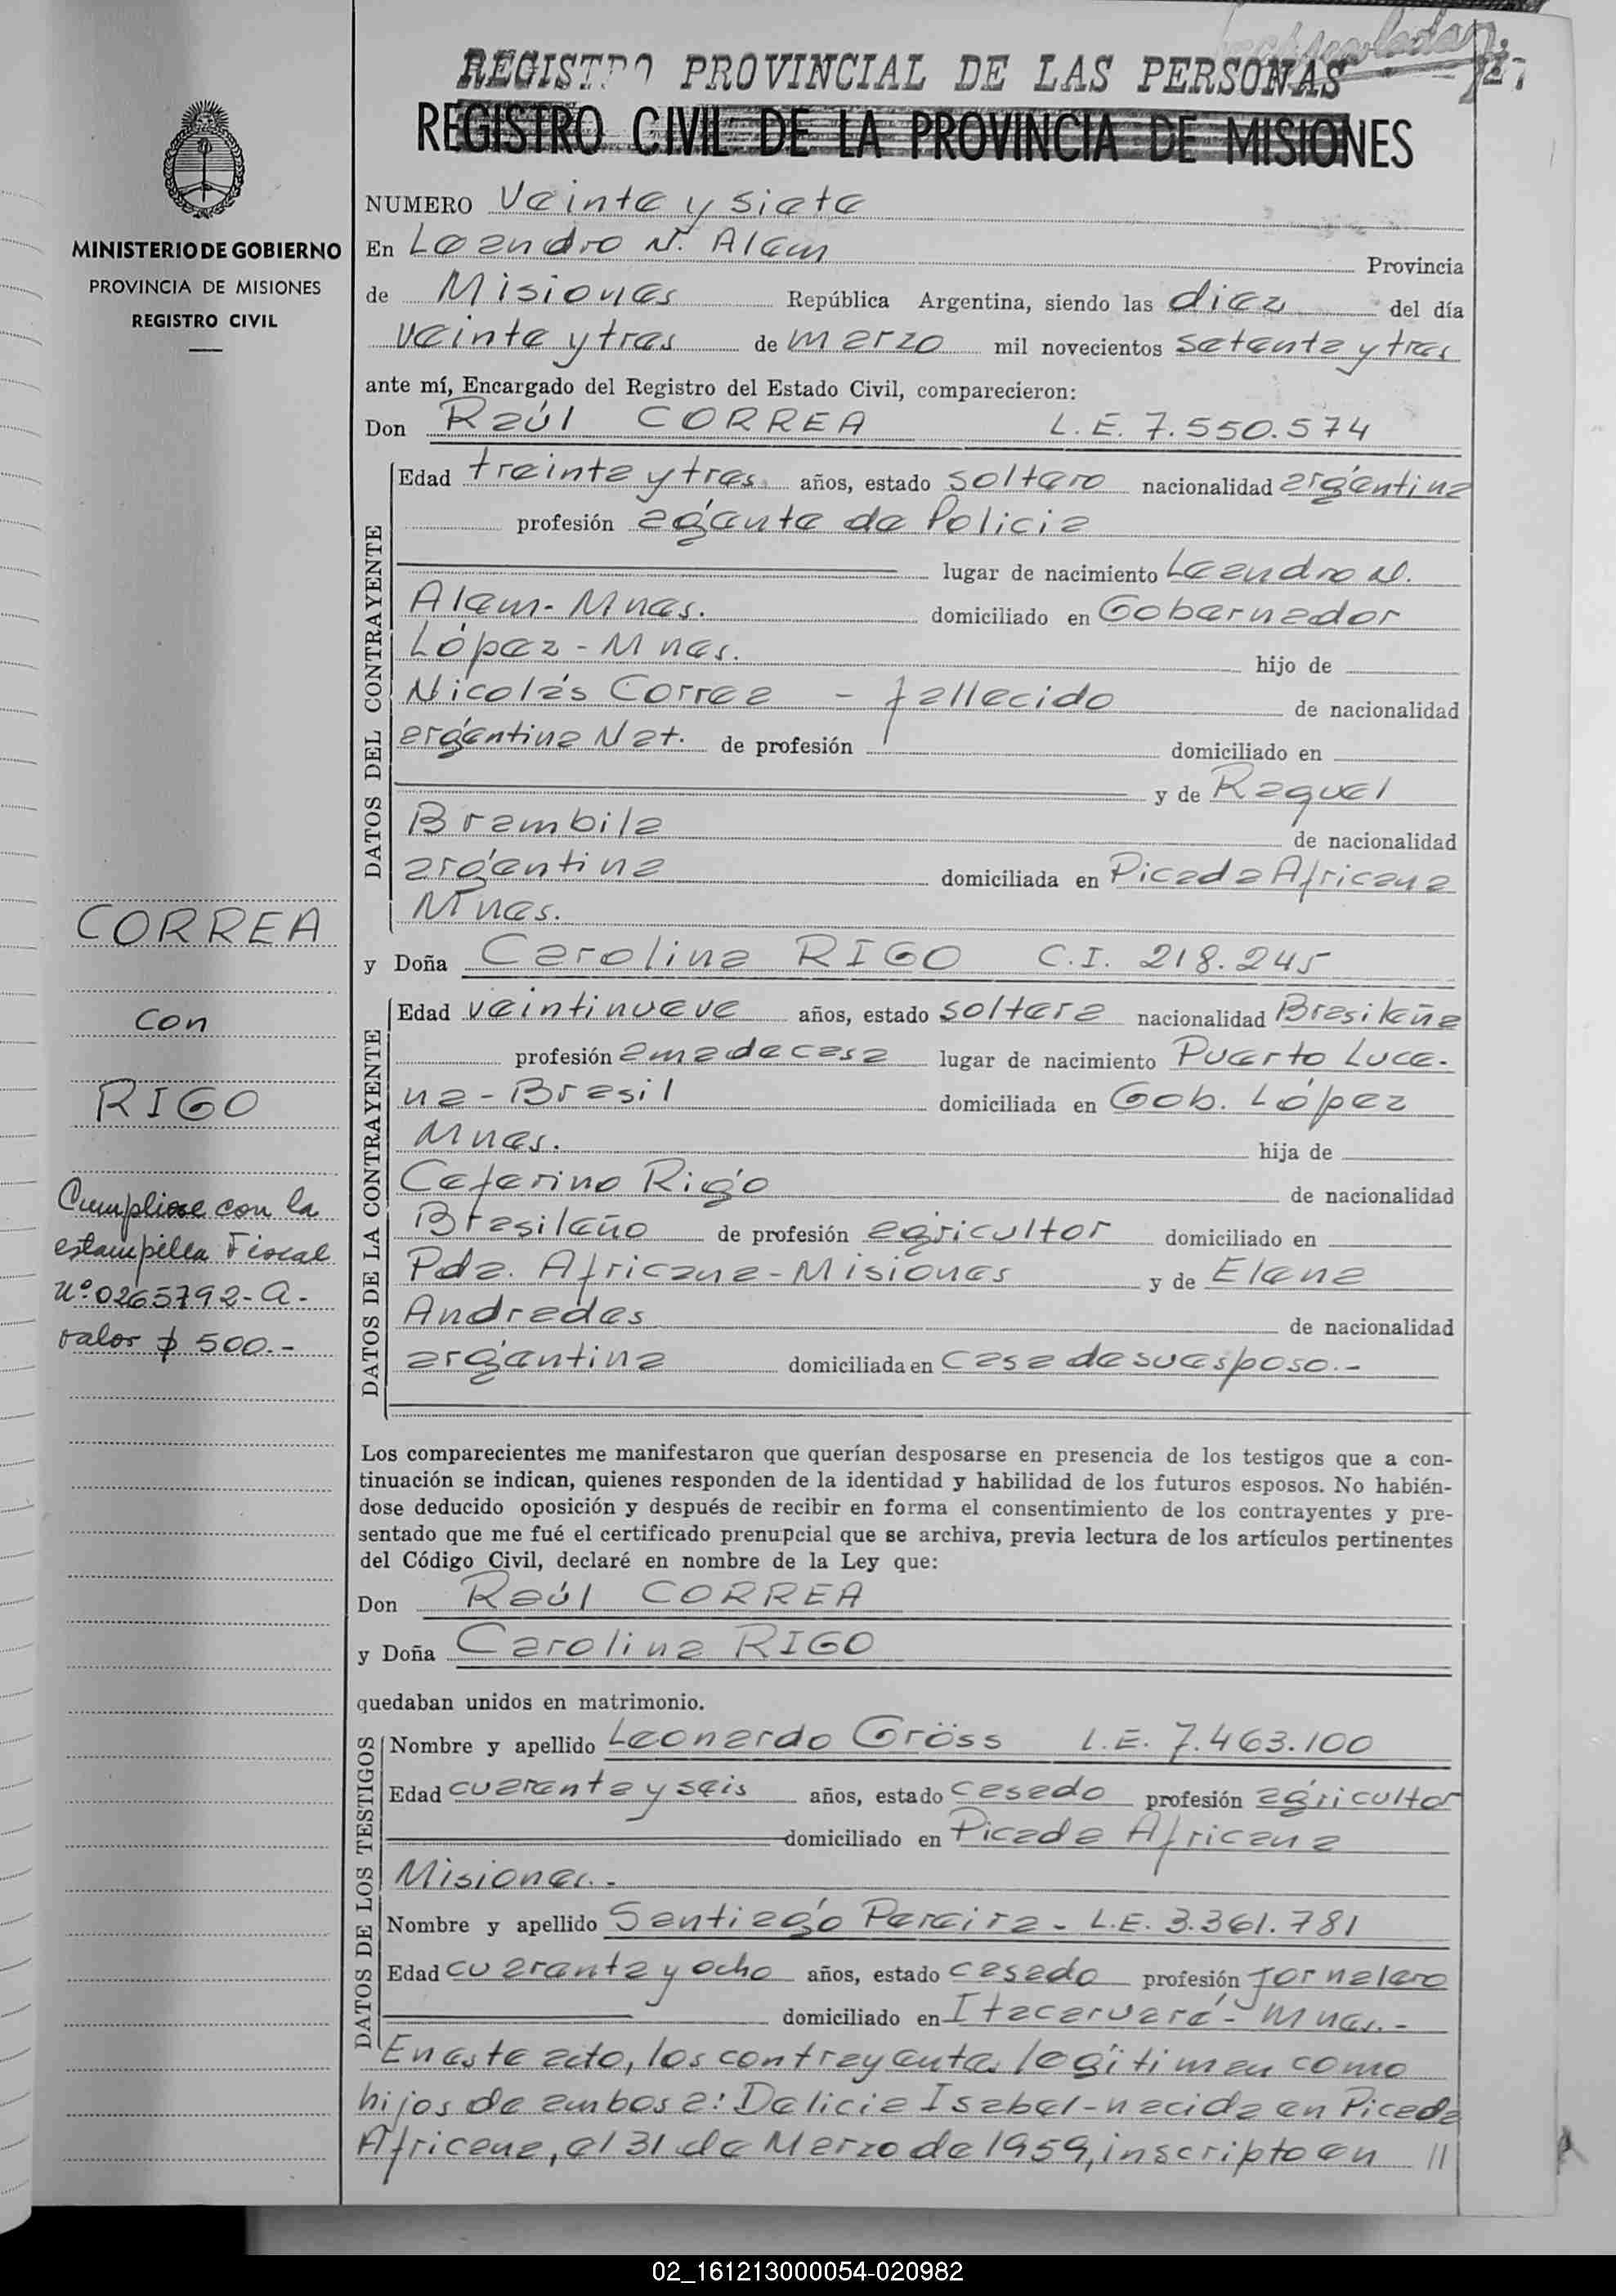 REGISTRO PROVINCIAL DE LAS PERSONAS
REGISTRO CIVIL DE LA PROVINCIA DE MISIONES
MINISTERIO DE GOBIERNO
PROVINCIA DE MISIONES
REGISTRO CIVIL
NUMERO Veinte y siete
En Leandro N. Alem Provincia
de Misiones República Argentina, siendo las diez del día
veinte y tres de marzo mil novecientos setenta y tres
ante mí, Encargado del Registro del Estado Civil, comparecieron:
Don Raúl CORREA L.E. 7.550.574
DATOS DEL CONTRAYENTE
Edad treinta y tres años, estado soltero nacionalidad argentina
profesión agente de Policia
lugar de nacimiento Leandro N.
Alem - Mnes. domiciliado en Gobernador
López - Mnes. hijo de
Nicolás Correa - fallecido de nacionalidad
argentina Nat. de profesión domiciliado en
y de Raquel
Brambila de nacionalidad
argentina domiciliada en Picada Africana
Mnes.
y Doña Carolina RIGO C.I. 218.245
DATOS DE LA CONTRAYENTE
Edad veintinueve años, estado soltera nacionalidad Brasileña
profesión ama de casa lugar de nacimiento Puerto Luce-
na - Brasil domiciliada en Gob. López
Mnes. hija de
Ceferino Rigo de nacionalidad
Brasileño de profesión agricultor domiciliado en
Pda. Africana - Misiones y de Elena
Andrades de nacionalidad
argentina domiciliada en casa de su esposo.-
CORREA
con
RIGO
Cumpliose con la
estampilla Fiscal
Nº 0265792-A-
valor $ 500.-
Los comparecientes me manifestaron que querían desposarse en presencia de los testigos que a con-
tinuación se indican, quienes responden de la identidad y habilidad de los futuros esposos. No habién-
dose deducido oposición y después de recibir en forma el consentimiento de los contrayentes y pre-
sentado que me fué el certificado prenupcial que se archiva, previa lectura de los artículos pertinentes
del Código Civil, declaré en nombre de la Ley que:
Don Raúl CORREA
y Doña Carolina RIGO
quedaban unidos en matrimonio.
DATOS DE LOS TESTIGOS
Nombre y apellido Leonardo Gröss L.E. 7.463.100
Edad cuarenta y seis años, estado casado profesión agricultor
domiciliado en Picada Africana
Misiones.-
Nombre y apellido Santiago Pereira - L.E. 3.361.781
Edad cuarenta y ocho años, estado casado profesión jornalero
domiciliado en Itacaruaré - Mnes.-
En este acto, los contrayentes legitiman como
hijos de ambos a: Delicia Isabel - nacida en Picada
Africana, el 31 de Marzo de 1959, inscripto en //
02_161213000054-020982